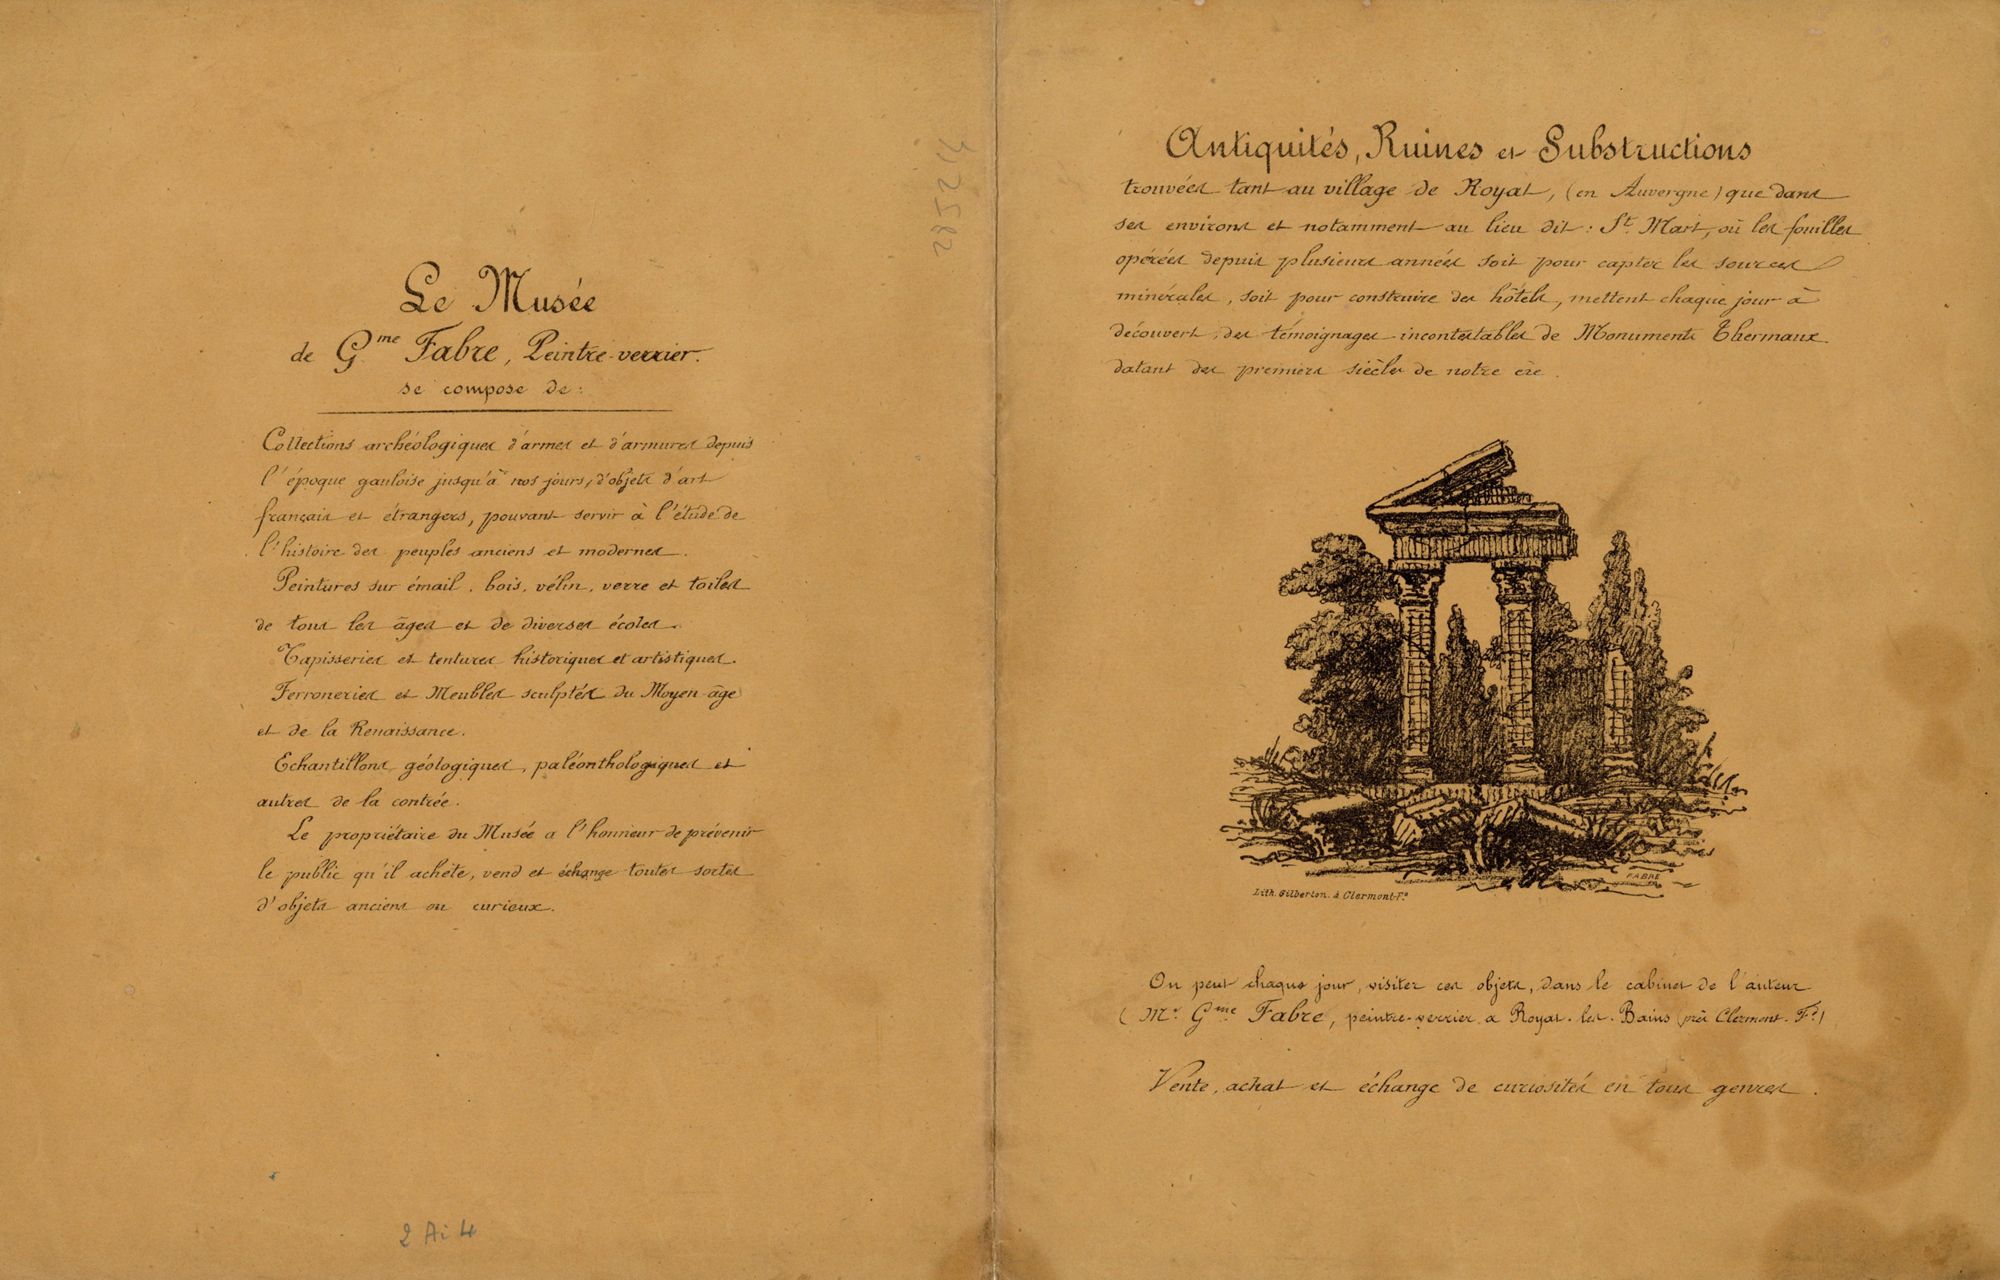 Le Musée
de G.me Fabre, Peintre-verrier.
se compose de :
Collections archéologiques d'armes et d'armures depuis
l'époque gauloise jusqu'à nos jours, d'objets d'art
français et étrangers, pouvant servir à l'étude de
l'histoire des peuples anciens et modernes.
Peintures sur émail, bois, vélin, verre et toiles
de tous les âges et de diverses écoles.
Tapisseries et tentures historiques et artistiques.
Ferroneries et Meubles sculptés du Moyen-âge
et de la Renaissance.
Echantillons géologiques, paléonthologiques et
autres de la contrée.
Le propriétaire du Musée a l'honneur de prévenir
le public qu'il achète, vend et échange toutes sortes
d'objets anciens ou curieux.
2 Ai 4
Antiquités, Ruines et Substructions
trouvées tant au village de Royat, (en Auvergne) que dans
ses environs et notamment au lieu dit : St. Mart, où les fouilles
opérées depuis plusieurs années soit pour capter les sources
minérales, soit pour construire des hôtels, mettent chaque jour à
découvert, des témoignages incontestables de Monuments Thermaux
datant des premiers siècles de notre ère.
FABRE
Lith. Gilberton. à Clermont-Fd.
On peut chaque jour, visiter ces objets, dans le cabinet de l'auteur
(Mr. Gme Fabre, peintre-verrier à Royat-les-Bains près Clermont-Fd.)
Vente, achat et échange de curiosités en tous genres.